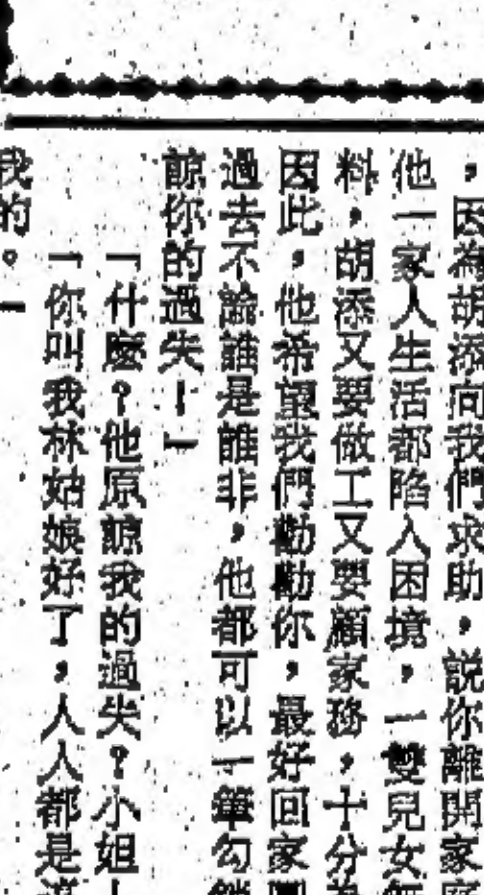 ，因為胡添向我們求助，説你離開家庭
他一家人生活都陷入困境，一雙兒女無
料，胡添又要做工又要顧家務，十分為
因此，他希望我們勸勸你，最好回家團
過去不論誰是誰非，他都可以一筆勾銷
諒你的過失！」
「什麼？他原諒我的過失？小姐！
「你叫我林姑娘好了，人人都是這
我的。」